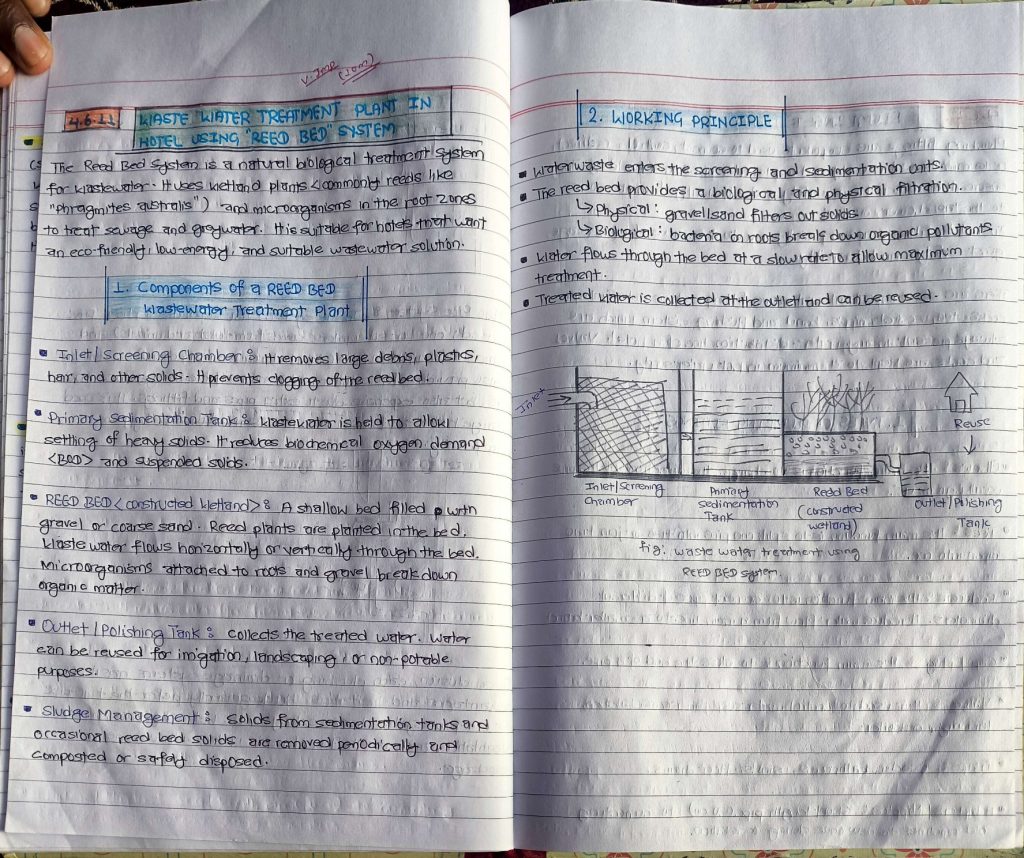 V. Imp
(10m)
4.6.11
WASTE WATER TREATMENT PLANT IN
HOTEL USING "REED BED" SYSTEM
The Reed Bed System is a natural biological treatment system
for wastewater. It uses wetland plants <commonly reeds like
"phragmites australis") and microorganisms in the root zones
to treat sewage and greywater. It is suitable for hotels that want
an eco-friendly, low-energy, and suitable wastewater solution.
1. Components of a REED BED
Wastewater Treatment Plant
Inlet/Screening Chamber : It removes large debris, plastics,
hair, and other solids. It prevents clogging of the reed bed.
Primary Sedimentation Tank : Wastewater is held to allow
settling of heavy solids. It reduces biochemical oxygen demand
<BOD> and suspended solids.
REED BED <constructed wetland> : A shallow bed filled with
gravel or coarse sand. Reed plants are planted in the bed.
Waste water flows horizontally or vertically through the bed.
Microorganisms attached to roots and gravel break down
organic matter.
Outlet/Polishing Tank : collects the treated water. Water
can be reused for irrigation, landscaping, or non-potable
purposes.
Sludge Management : Solids from sedimentation tanks and
occasional reed bed solids are removed periodically and
composted or safely disposed.
2. WORKING PRINCIPLE
Waterwaste enters the screening and sedimentation units.
The reed bed provides a biological and physical filtration.
↳ Physical : gravel/sand filters out solids.
↳ Biological : bacteria on roots break down organic pollutants
Water flows through the bed at a slow rate to allow maximum
treatment.
Treated water is collected at the outlet and can be reused.
Inlet
Reuse
Inlet/Screening
Chamber
Primary
Sedimentation
Tank
Reed Bed
(constructed
wetland)
Outlet/Polishing
Tank
fig: waste water treatment using
REED BED system.